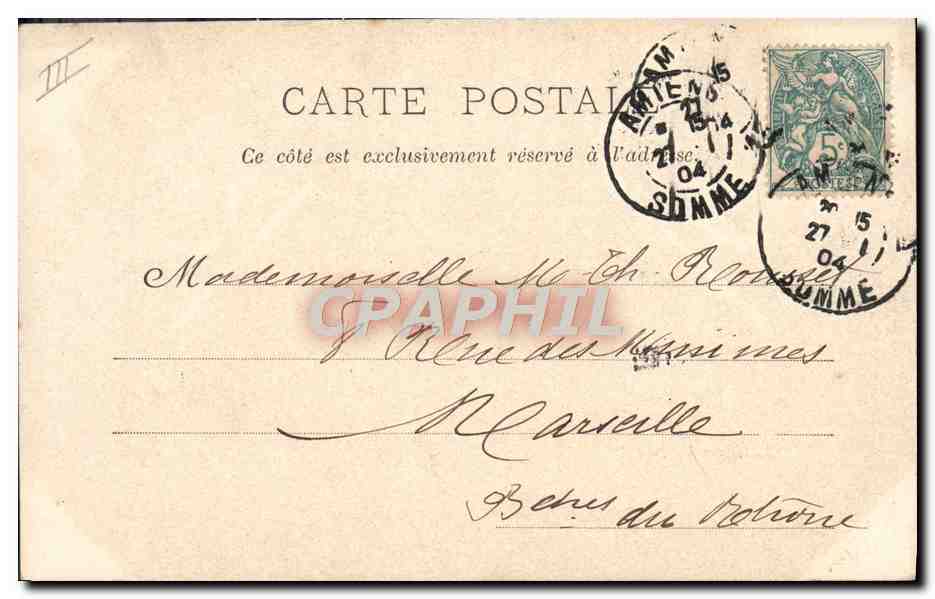 III
CARTE POSTAL
Ce côté est exclusivement réservé à l'adresse.
AMIENS
15
27
04
SOMME
5c
POSTES
AMIENS
15
27
04
SOMME
Mademoiselle M. Th. Rousset
8 Rue des Minimes
Marseille
Bches du Rhône
CPAPHIL